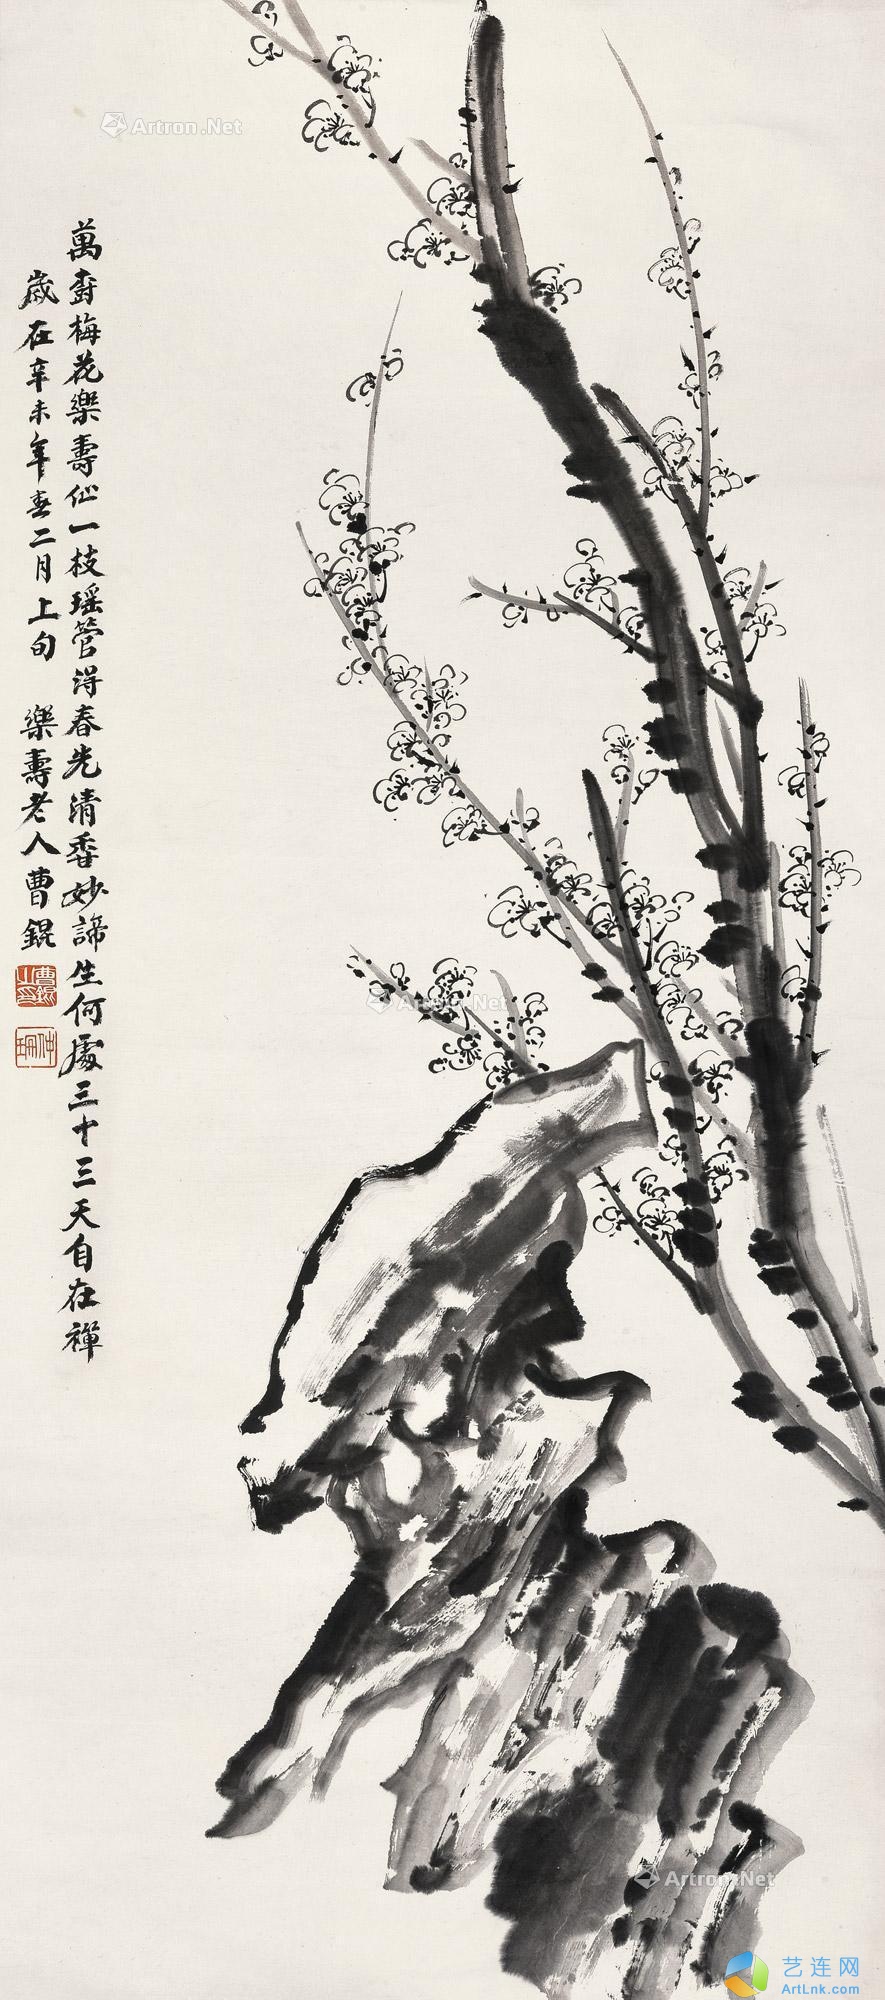 萬樹梅花樂壽仙一枝瑶管得春先清香妙諦生何處三十三天自在禪
歲在辛未年春二月上旬 樂壽老人曹錕
曹錕之印
仲珊
Artron.Net
Artron.Net
Artron.Net
艺连网
ArtLnk.com